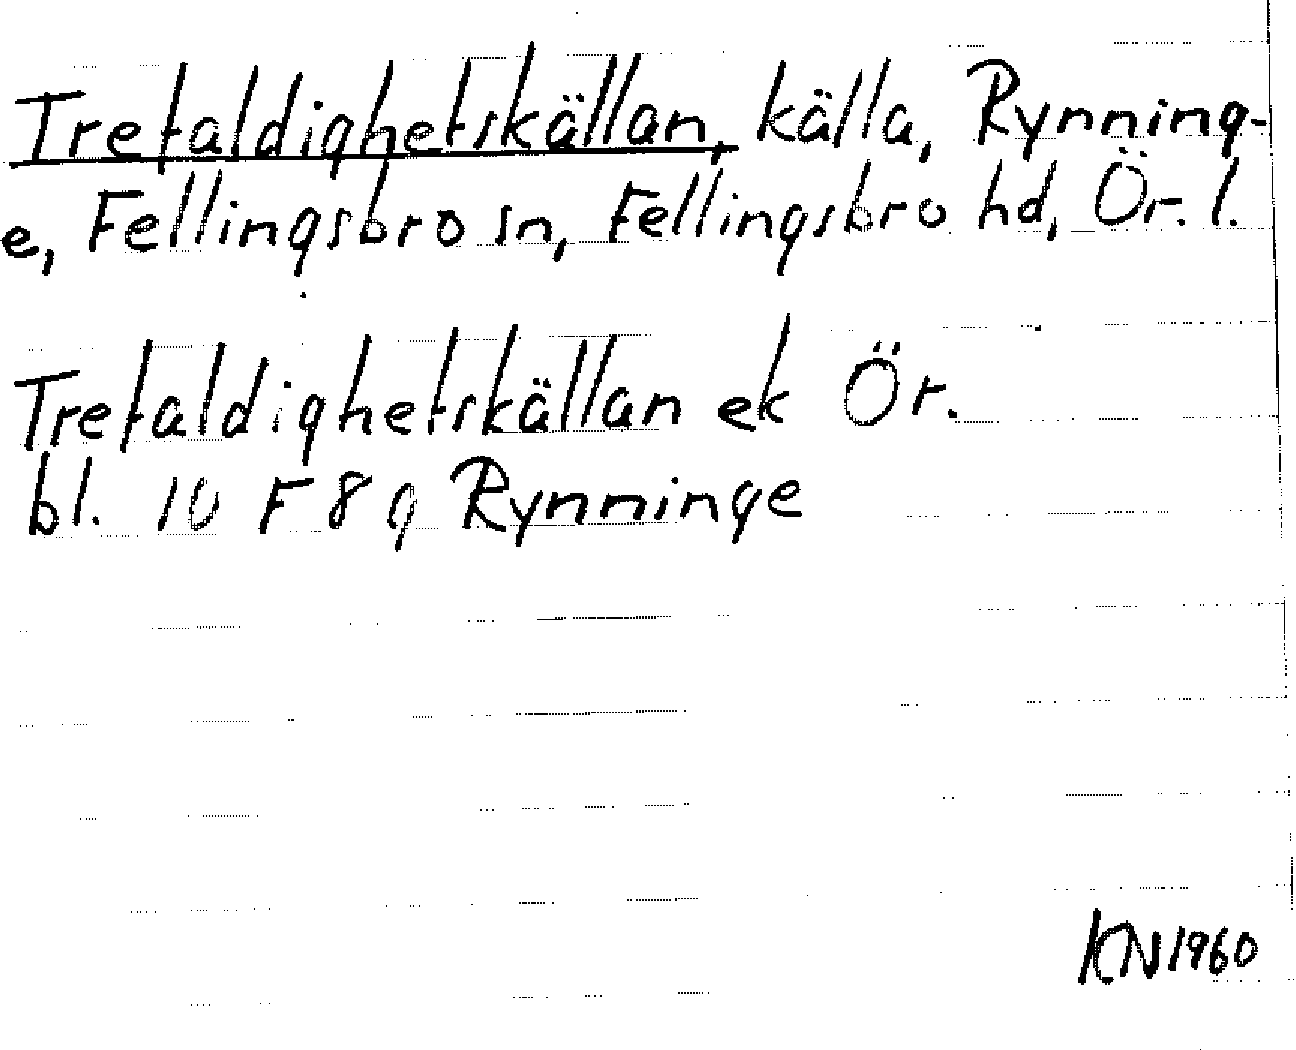 Trefaldighetskällan, källa, Rynning-
e, Fellingsbro sn, Fellingsbro hd, Ör. l.
Trefaldighetskällan ek Ör.
bl. 10 F 8 g Rynninge
KN1960